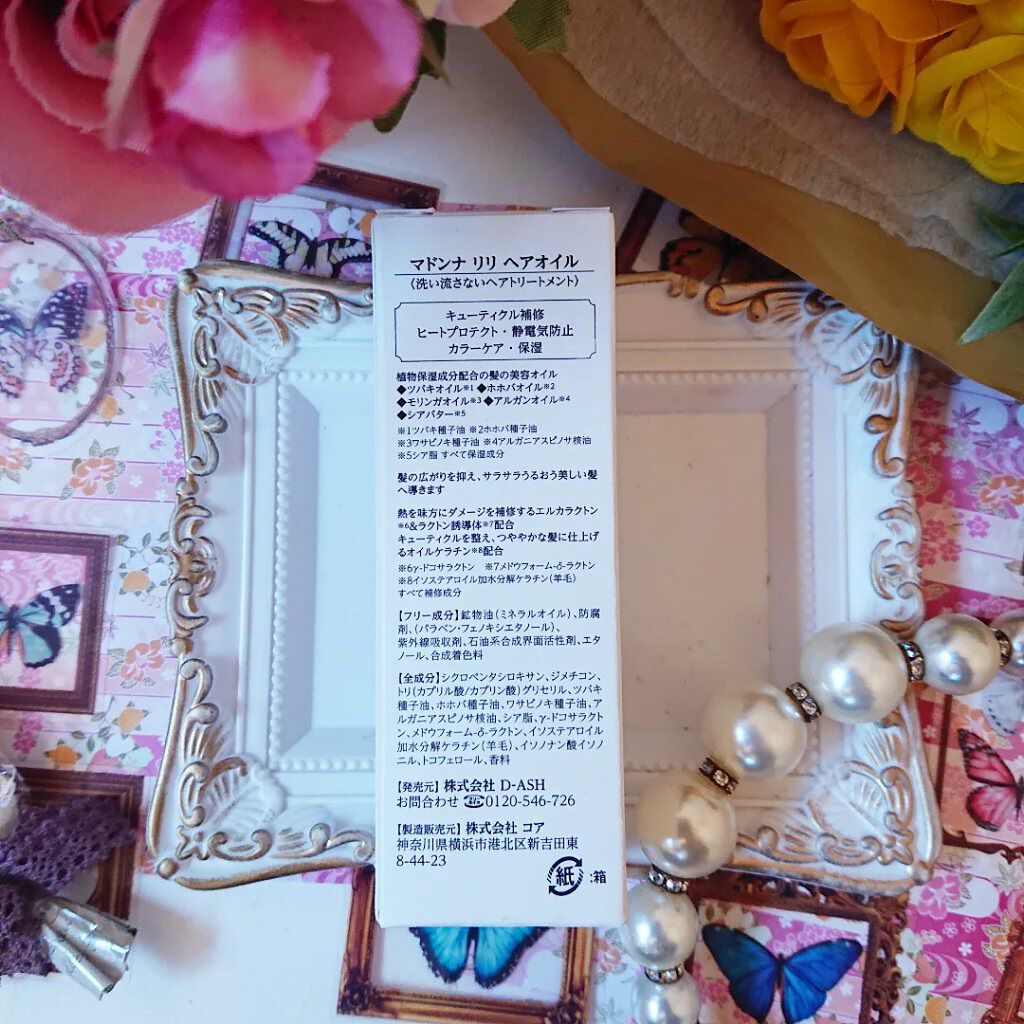 マドンナ リリ ヘアオイル
(洗い流さないヘアトリートメント)
キューティクル補修
ヒートプロテクト・静電気防止
カラーケア・保湿
植物保湿成分配合の髪の美容オイル
◆ツバキオイル※1 ◆ホホバオイル※2
◆モリンガオイル※3 ◆アルガンオイル※4
◆シアバター※5
※1ツバキ種子油 ※2ホホバ種子油
※3ワサビノキ種子油 ※4アルガニアスピノサ核油
※5シア脂 すべて保湿成分
髪の広がりを抑え、サラサラうるおう美しい髪
へ導きます
熱を味方にダメージを補修するエルカラクトン
※6&ラクトン誘導体※7配合
キューティクルを整え、つややかな髪に仕上げ
るオイルケラチン※8配合
※6γ-ドコサラクトン ※7メドウフォーム-δ-ラクトン
※8イソステアロイル加水分解ケラチン(羊毛)
すべて補修成分
【フリー成分】鉱物油(ミネラルオイル)、防腐
剤、(パラベン・フェノキシエタノール)、
紫外線吸収剤、石油系合成界面活性剤、エタ
ノール、合成着色料
【全成分】シクロペンタシロキサン、ジメチコン、
トリ(カプリル酸/カプリン酸)グリセリル、ツバキ
種子油、ホホバ種子油、ワサビノキ種子油、ア
ルガニアスピノサ核油、シア脂、γ-ドコサラクト
ン、メドウフォーム-δ-ラクトン、イソステアロイル
加水分解ケラチン(羊毛)、イソノナン酸イソノ
ニル、トコフェロール、香料
【発売元】株式会社 D-ASH
お問合わせ 0120-546-726
【製造販売元】株式会社 コア
神奈川県横浜市港北区新吉田東
8-44-23
紙 :箱